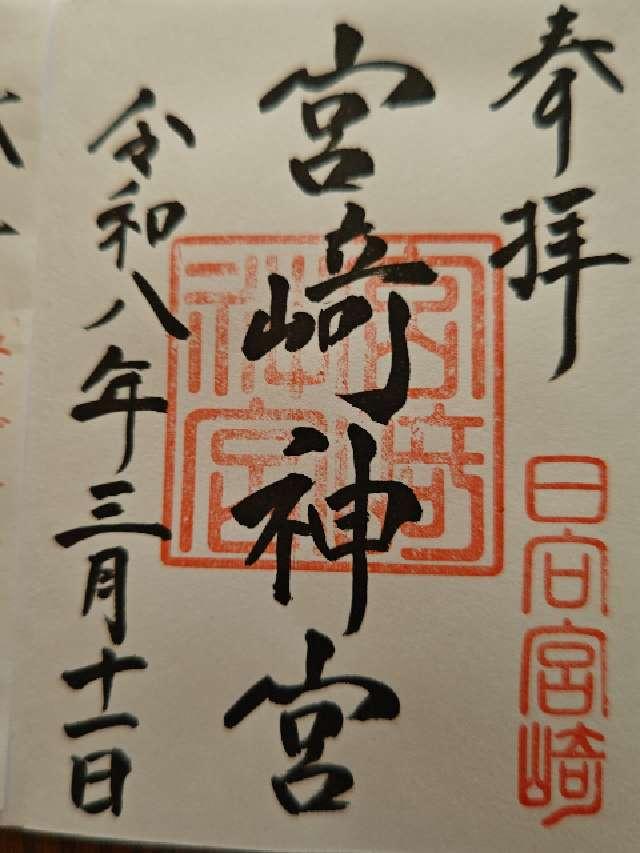 奉拝
日向宮崎
宮﨑神宮
宮崎神宮
令和八年三月十一日